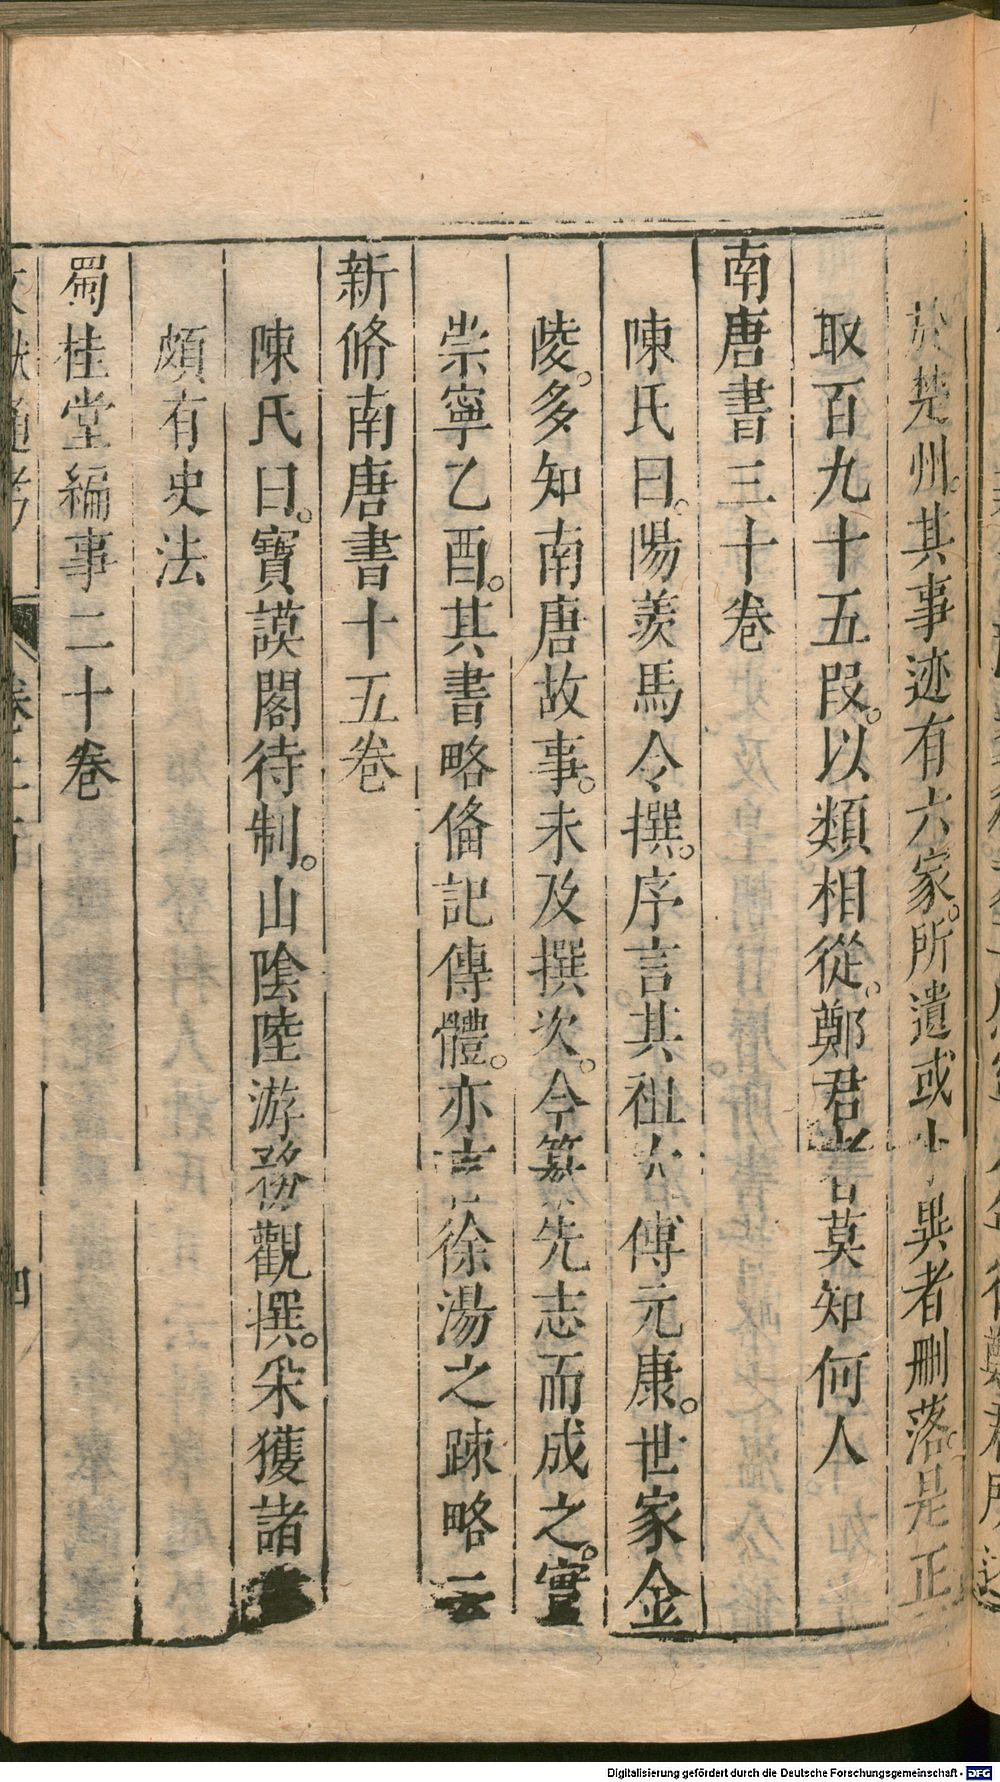 於楚州。其事迹有六家。所遺或小異者刪落。是正
取百九十五段。以類相從。鄭君者莫知何人
南唐書三十卷
陳氏曰。陽羨馬令撰。序言其祖太傅元康。世家金
陵。多知南唐故事。未及撰次。今纂先志而成之。實
崇寧乙酉。其書略偹記傳體。亦言徐湯之踈略云
新脩南唐書十五卷
陳氏曰。寶謨閣待制。山陰陸游務觀撰。采獲諸
頗有史法
蜀桂堂編事二十卷
Digitalisierung gefördert durch die Deutsche Forschungsgemeinschaft - DFG